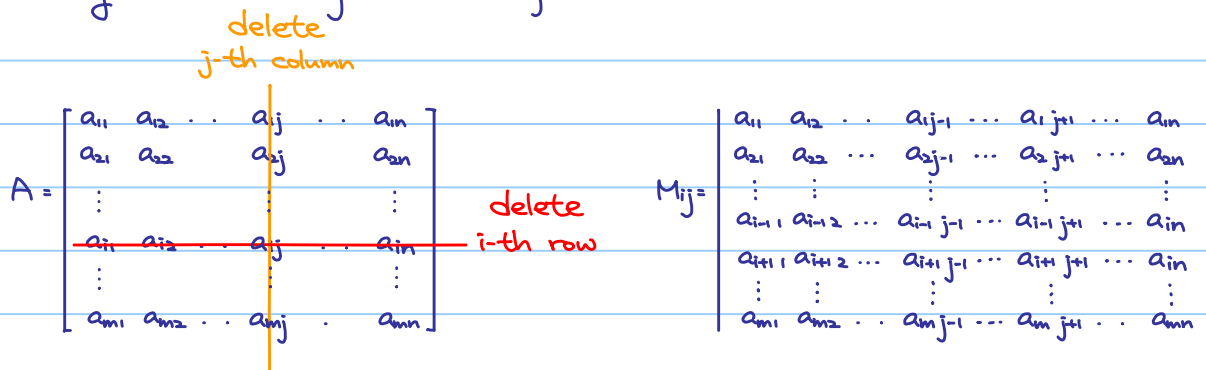 delete
j-th column
A = [ a11 a12 ·· a1j ·· a1n
a21 a22 a2j a2n
⋮ ⋮ ⋮
ai1 ai2 ·· aij ·· ain
⋮ ⋮ ⋮
am1 am2 ·· amj · amn ]
delete
i-th row
Mij = | a11 a12 ·· a1j-1 ··· a1 j+1 ··· a1n
a21 a22 ··· a2j-1 ··· a2 j+1 ··· a2n
⋮ ⋮ ⋮ ⋮ ⋮
ai-1 1 ai-1 2 ··· ai-1 j-1 ··· ai-1 j+1 ··· ain
ai+1 1 ai+1 2 ··· ai+1 j-1 ··· ai+1 j+1 ··· ain
⋮ ⋮ ⋮ ⋮ ⋮
am1 am2 ·· am j-1 ··· am j+1 ·· amn